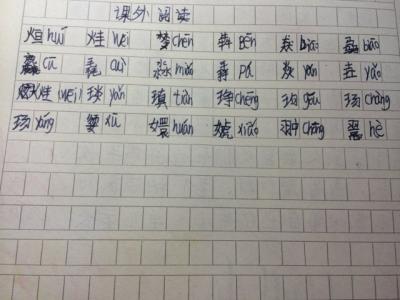 课外阅读
烜 huǐ 烓 wēi 棽 chēn 犇 bēn 猋 biāo 骉 biāo
麤 cū 毳 cuì 淼 miǎo 掱 pá 焱 yàn 垚 yáo
烓 (wēi) 琰 yǎn 瑱 tiàn 琤 chēng 玽 gǒu 玚 chàng
玚 yáng 媭 xū 嬛 huán 婋 xiāo 翀 chōng 翯 hè